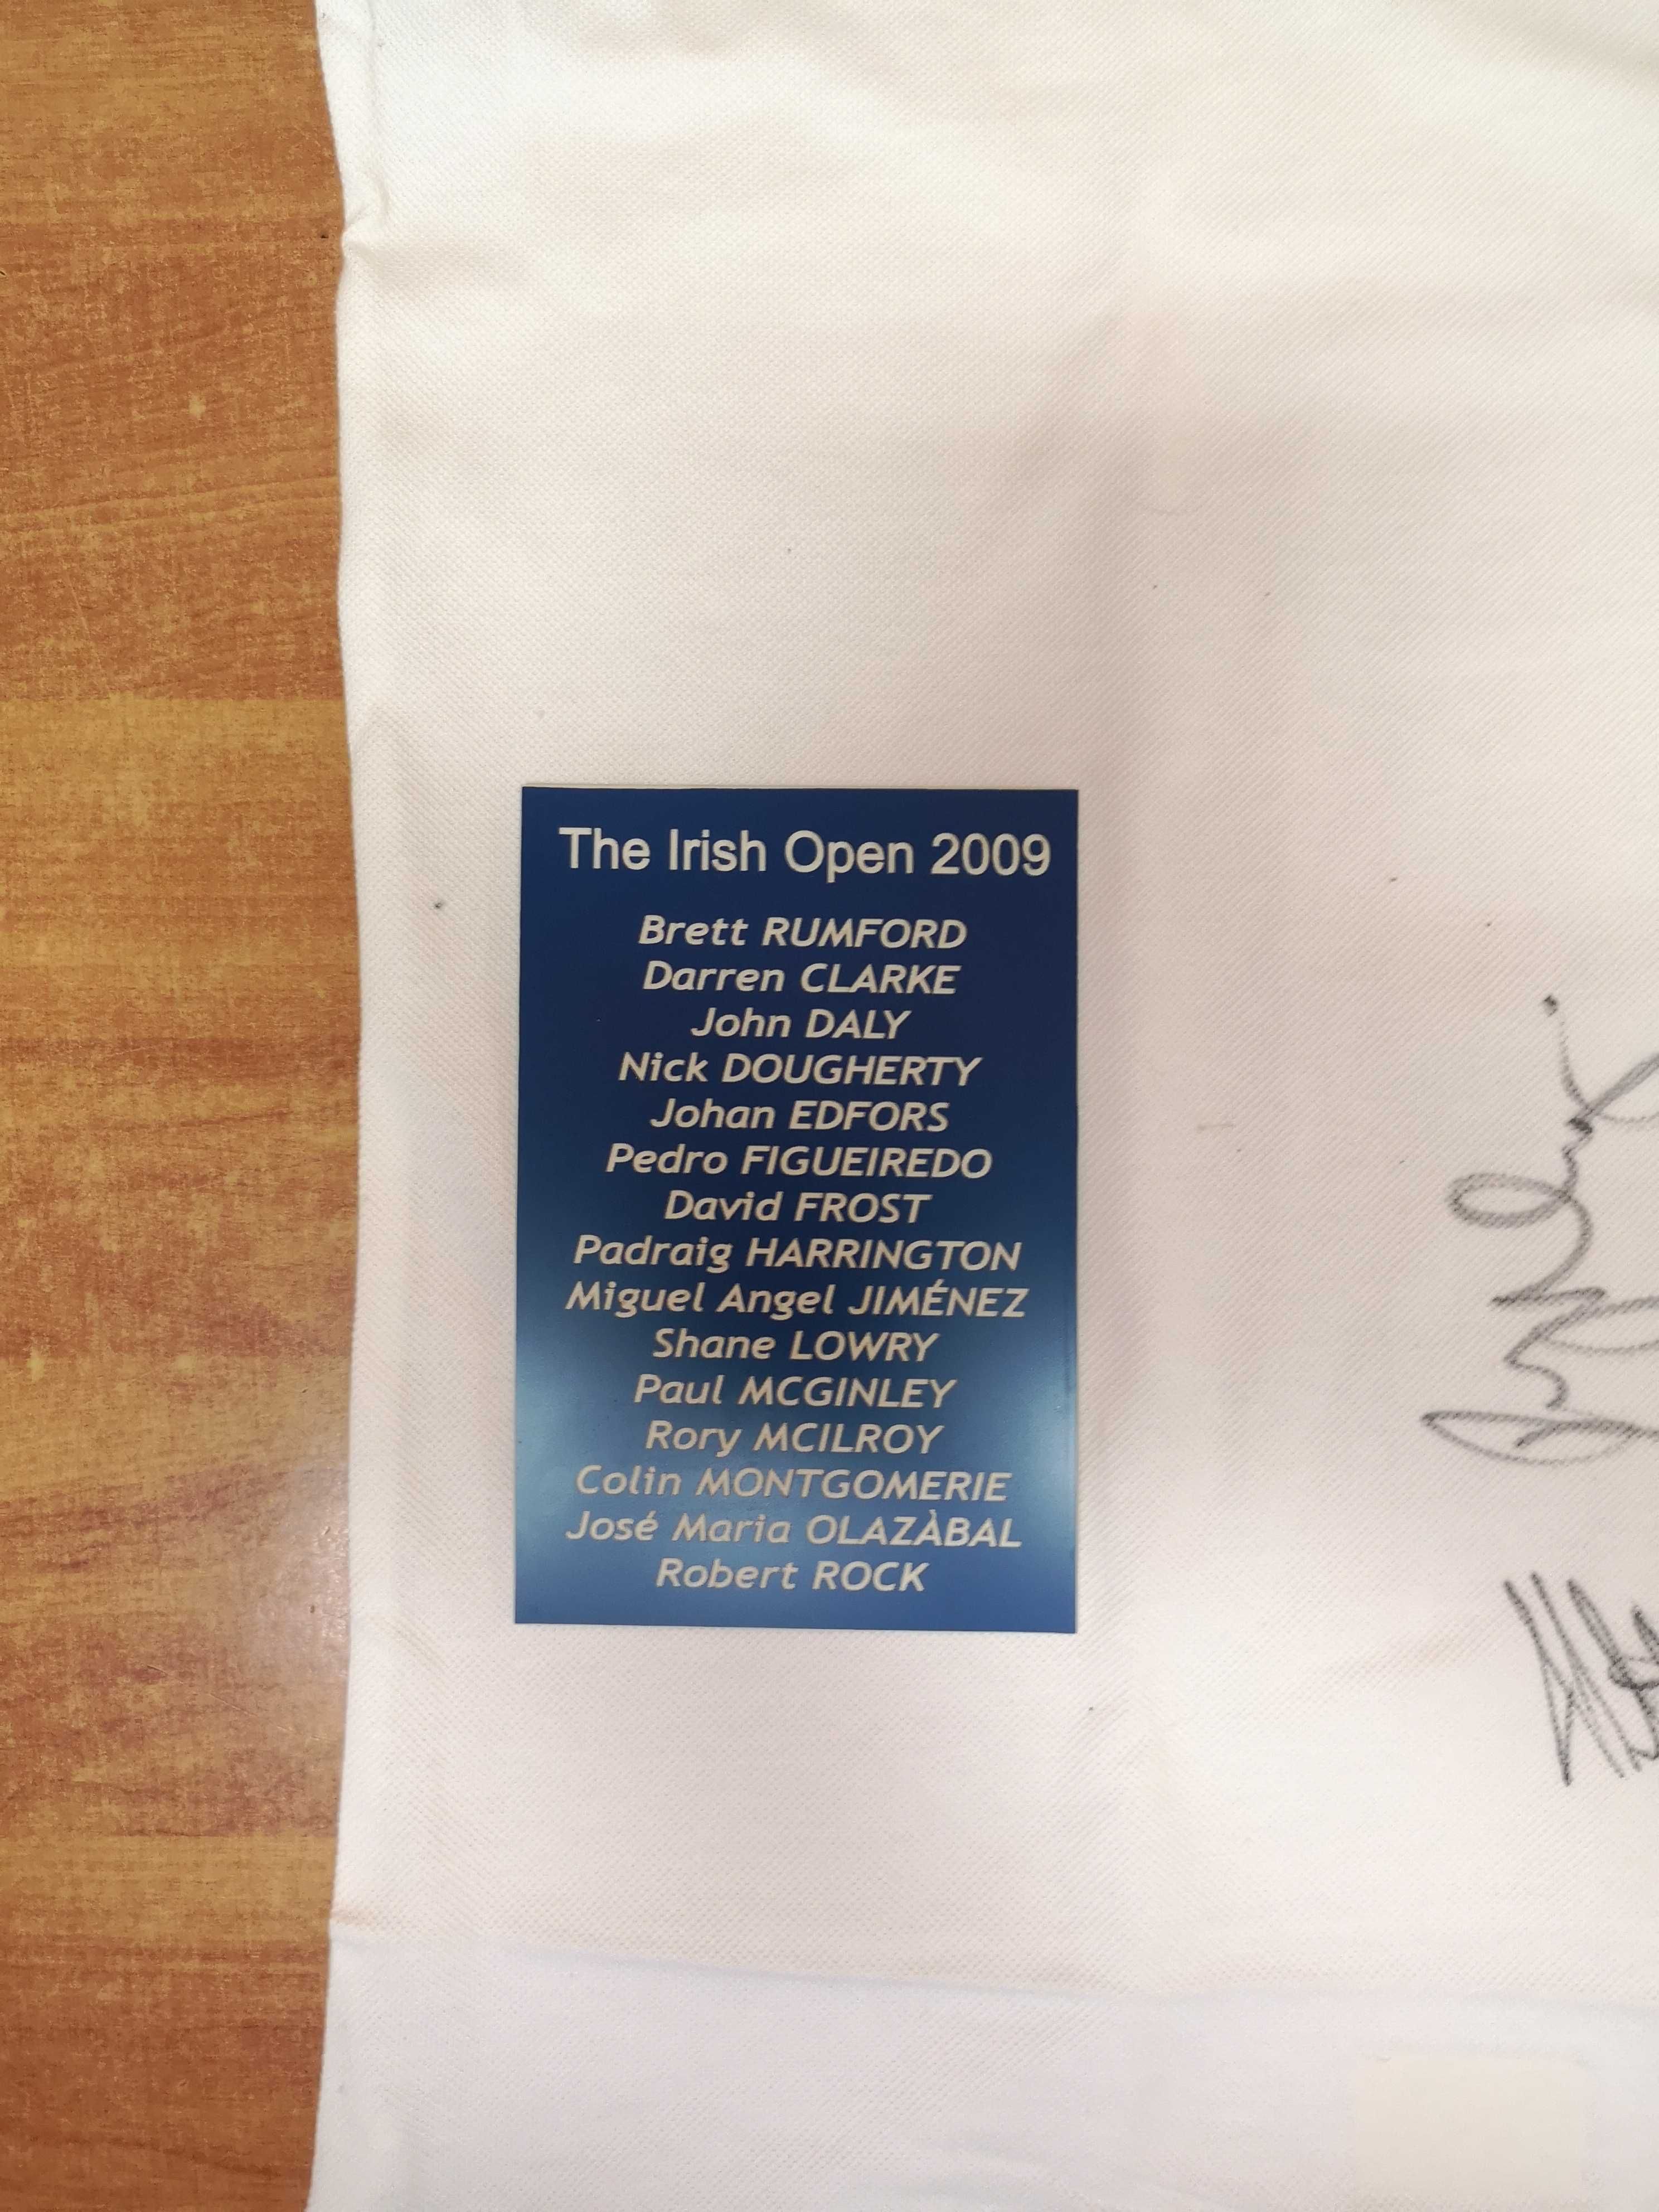 The Irish Open 2009
Brett RUMFORD
Darren CLARKE
John DALY
Nick DOUGHERTY
Johan EDFORS
Pedro FIGUEIREDO
David FROST
Padraig HARRINGTON
Miguel Angel JIMÉNEZ
Shane LOWRY
Paul MCGINLEY
Rory MCILROY
Colin MONTGOMERIE
José Maria OLAZÀBAL
Robert ROCK